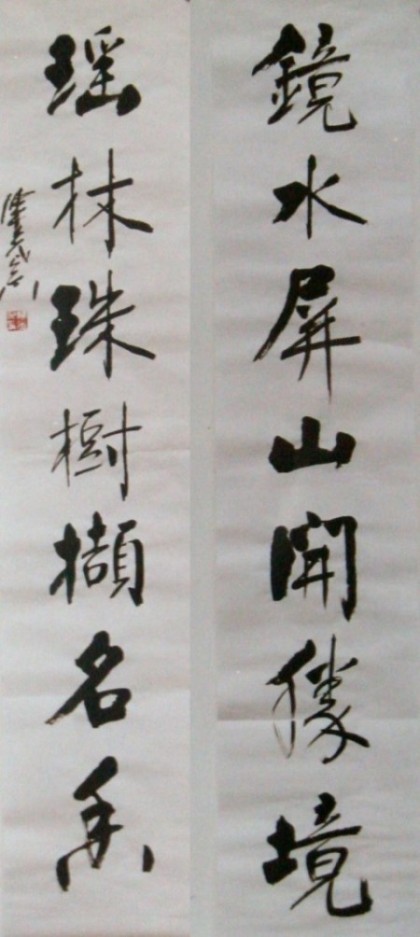 鏡水屏山開勝境
瑶林珠樹擷名香